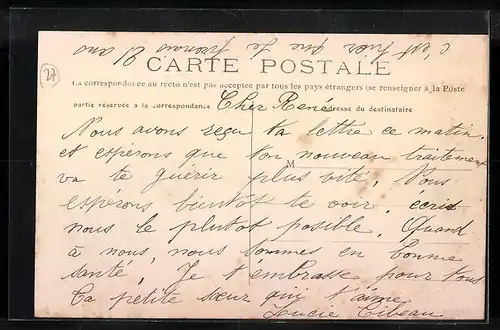 c'est hier que je prenais 21 ans
27
CARTE POSTALE
La correspondance au recto n'est pas acceptée par tous les pays étrangers (se renseigner à la Poste
partie réservée à la correspondance
adresse du destinataire
M
Cher René
Nous avons reçu ta lettre ce matin.
et espérons que ton nouveau traitement
va te guérir plus vite. Nous
espérons bientot te voir. ecris
nous le plutot posible. Quand
à nous, nous sommes en bonne
santé, Je t'embrasse pour tous
Ta petite sœur qui t'aime
Lucie Tibeau